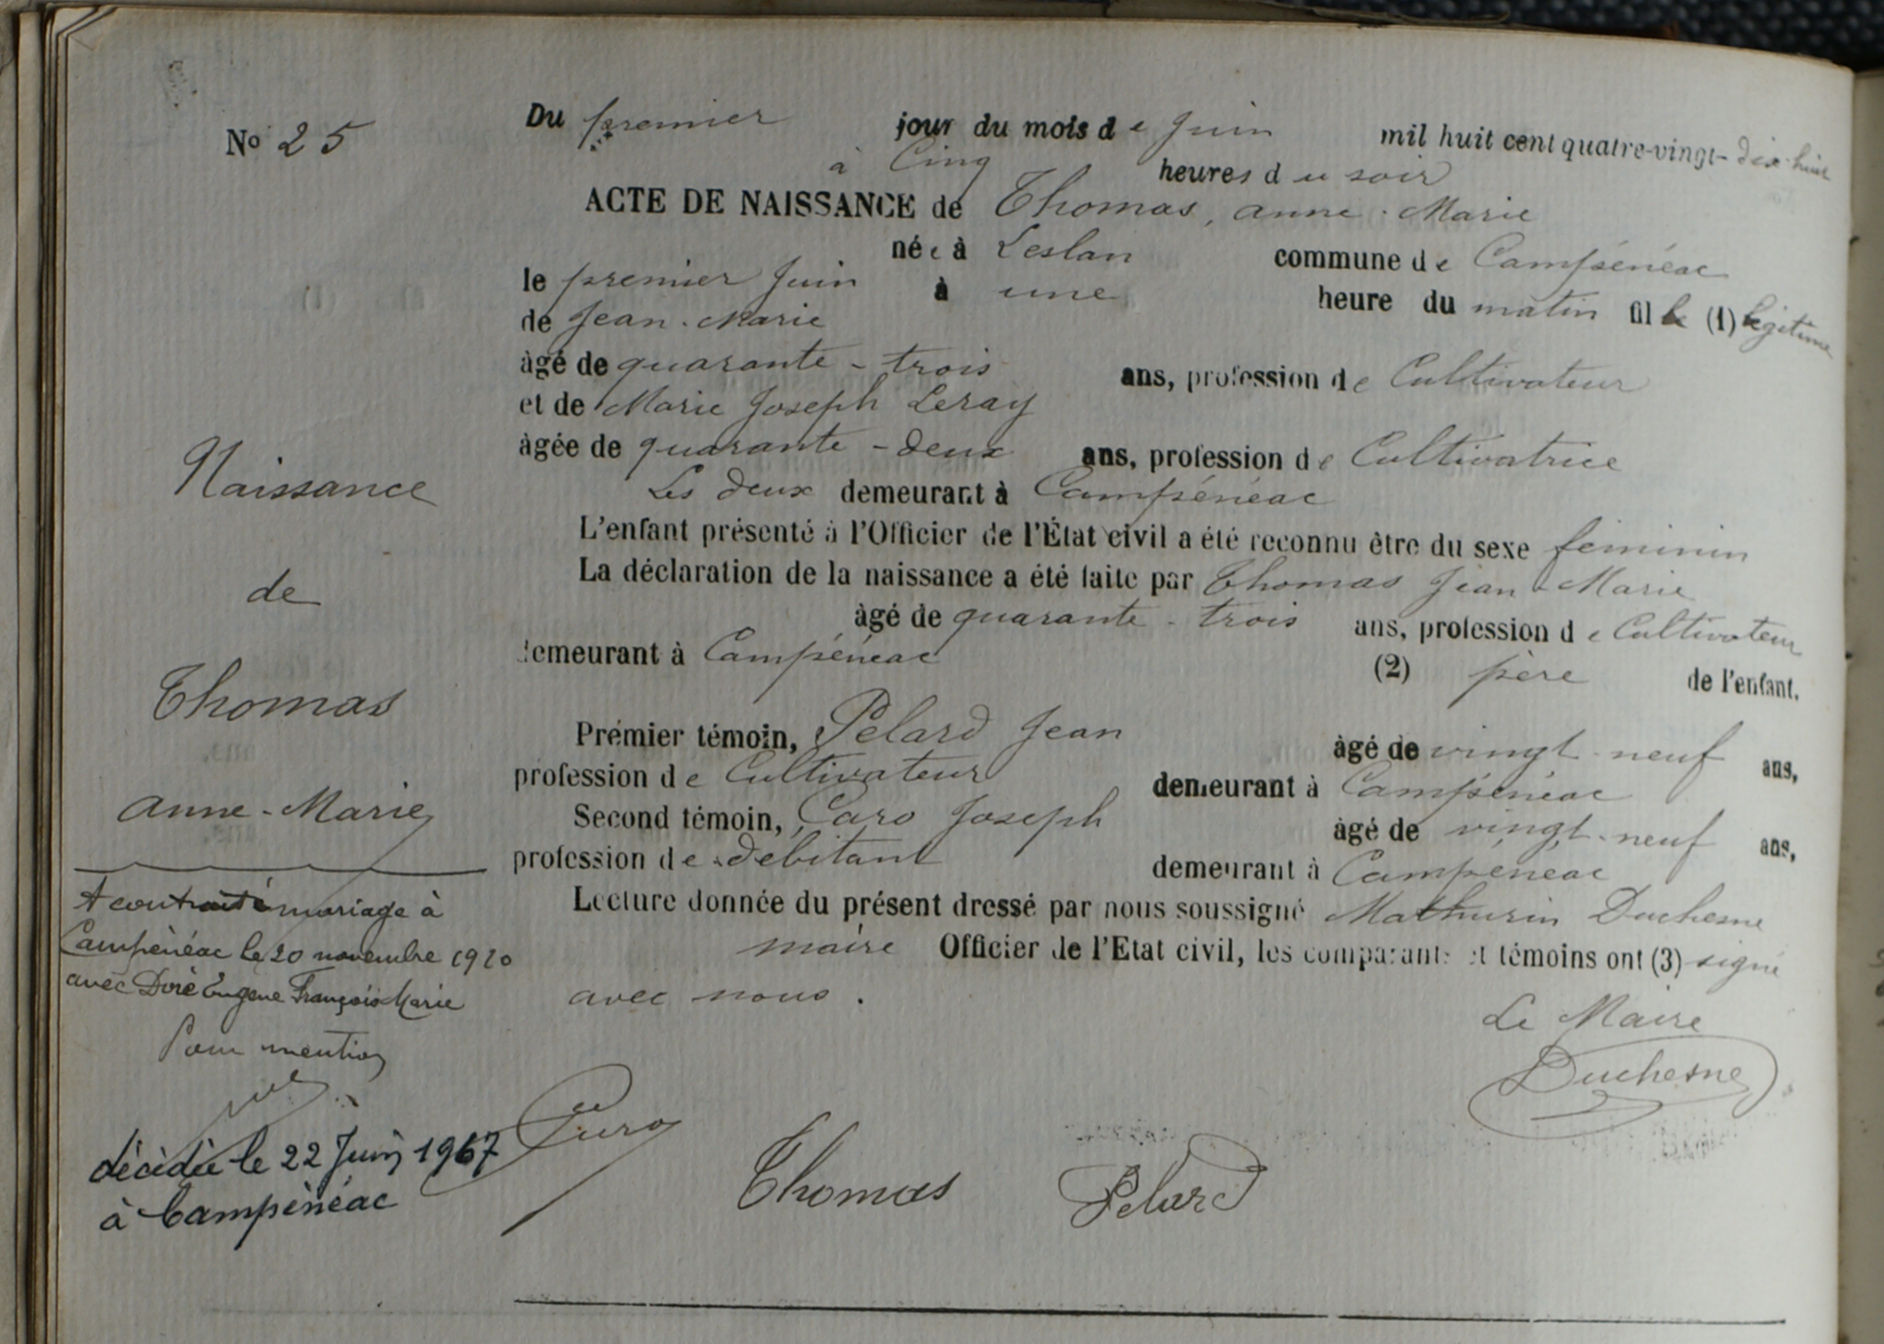 No 25
Du premier jour du mois de Juin mil huit cent quatre-vingt-dix-huit
à Cinq heures du soir
ACTE DE NAISSANCE de Thomas, anne-Marie
née à Leslan commune de Campénéac
le premier Juin à une heure du matin fille (1) légitime
de Jean-Marie
âgé de quarante-trois ans, profession de Cultivateur
et de Marie Joseph Leray
âgée de quarante-deux ans, profession de Cultivatrice
Les deux demeurant à Campénéac
L'enfant présenté à l'Officier de l'État civil a été reconnu être du sexe féminin
La déclaration de la naissance a été faite par Thomas Jean-Marie
âgé de quarante-trois ans, profession de Cultivateur
demeurant à Campénéac (2) père de l'enfant.
Prémier témoin, Pelard Jean âgé de vingt-neuf ans,
profession de Cultivateur demeurant à Campénéac
Second témoin, Caro Joseph âgé de vingt-neuf ans,
profession de débitant demeurant à Campénéac
Lecture donnée du présent dressé par nous soussigné Mathurin Duchesne
maire Officier de l'Etat civil, les comparants et témoins ont (3) signé
avec nous.
Le Maire
Duchesne
Caro
Thomas
Pelard
Naissance
de
Thomas
anne-Marie
A contracté mariage à
Campénéac le 20 novembre 1920
avec Doré Eugène François Marie
Pour mention
décédée le 22 Juin 1967
à Campénéac